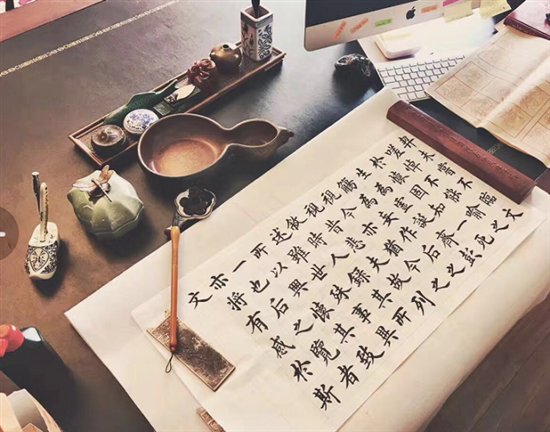 契未嘗不臨文
嗟悼不能喻之
於懷固知一死
生為虛誕齊彭
殤為妄作后之
視今亦猶今之
視昔悲夫故列
叙時人録其所
述雖世殊事異
所以興懷其致
一也后之覽者
亦將有感於斯
文